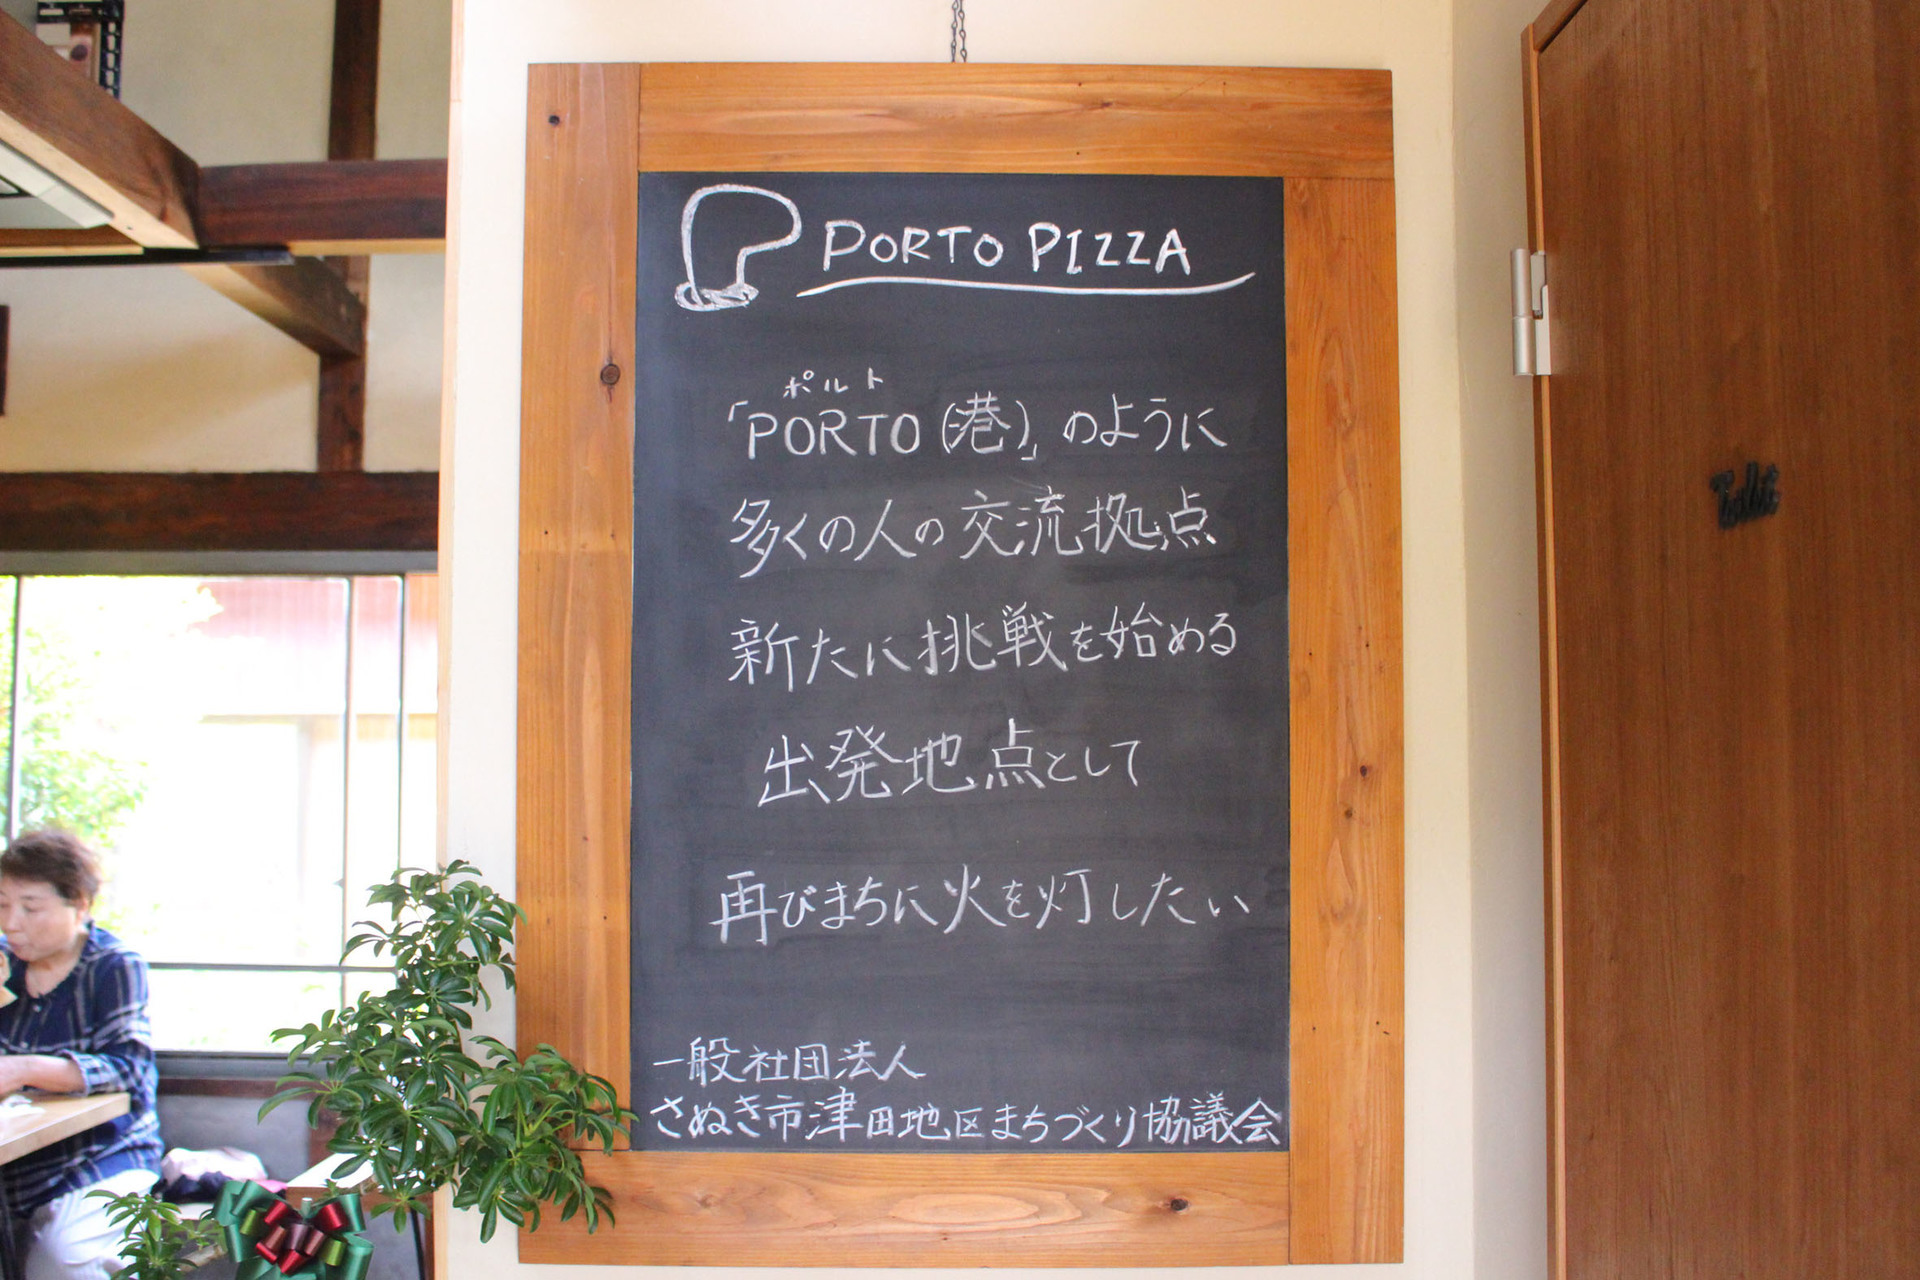 PORTO PIZZA
ポルト
「PORTO(港)」のように
多くの人の交流拠点
新たに挑戦を始める
出発地点として
再びまちに火を灯したい
一般社団法人
さぬき市津田地区まちづくり協議会
Toilet